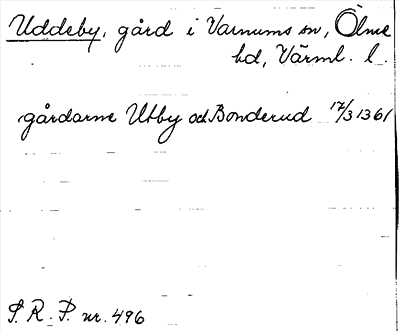 Uddeby, gård i Varnums sn, Ölme
hd, Värml. l.
gårdarne Utby och Bonderud 17/3 1361
S. R. P. nr. 496